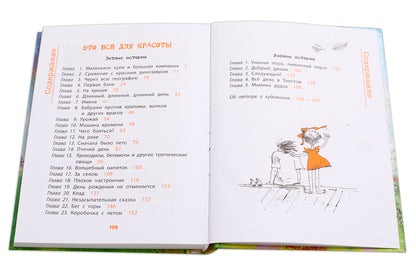 Содержание
ЭТО ВСЁ ДЛЯ КРАСОТЫ
Летние истории
Глава 1. Маленькое купе и большая компания 5
Глава 2. Сражение с красным динозавром 13
Глава 3. Через всю географию
Глава 4. Первая баня
Глава 5. На крыше
Глава 6. Длинный, длинный, длинный день
Глава 7. Имена
Глава 8. Бабушки против крапивы, волков
и других врагов
Глава 9. Урожай 54
Глава 10. Машина времени 58
Глава 11. Чего бояться? 63
Глава 12. На реке 70
Глава 13. Сначала было лето 79
Глава 14. Птичий день 87
Глава 15. Крокодилы, бегемоты и другие тропические
овощи 95
Глава 16. Волшебный напиток 103
Глава 17. За селом 110
Глава 18. Плохое настроение 116
Глава 19. День рождения не отменяется 123
Глава 20. Клад 127
Глава 21. Незасыпательная сказка 137
Глава 22. Бег с горы 146
Глава 23. Коробочка с летом 152
198
Зимние истории
Глава 1. Унылая пора, лимонный пирог
Глава 2. Добрый дядя
Глава 3. Следующий!
Глава 4. Всё дело в Толстом
Глава 5. Мамина дудка
Об авторе и художнике
Содержание